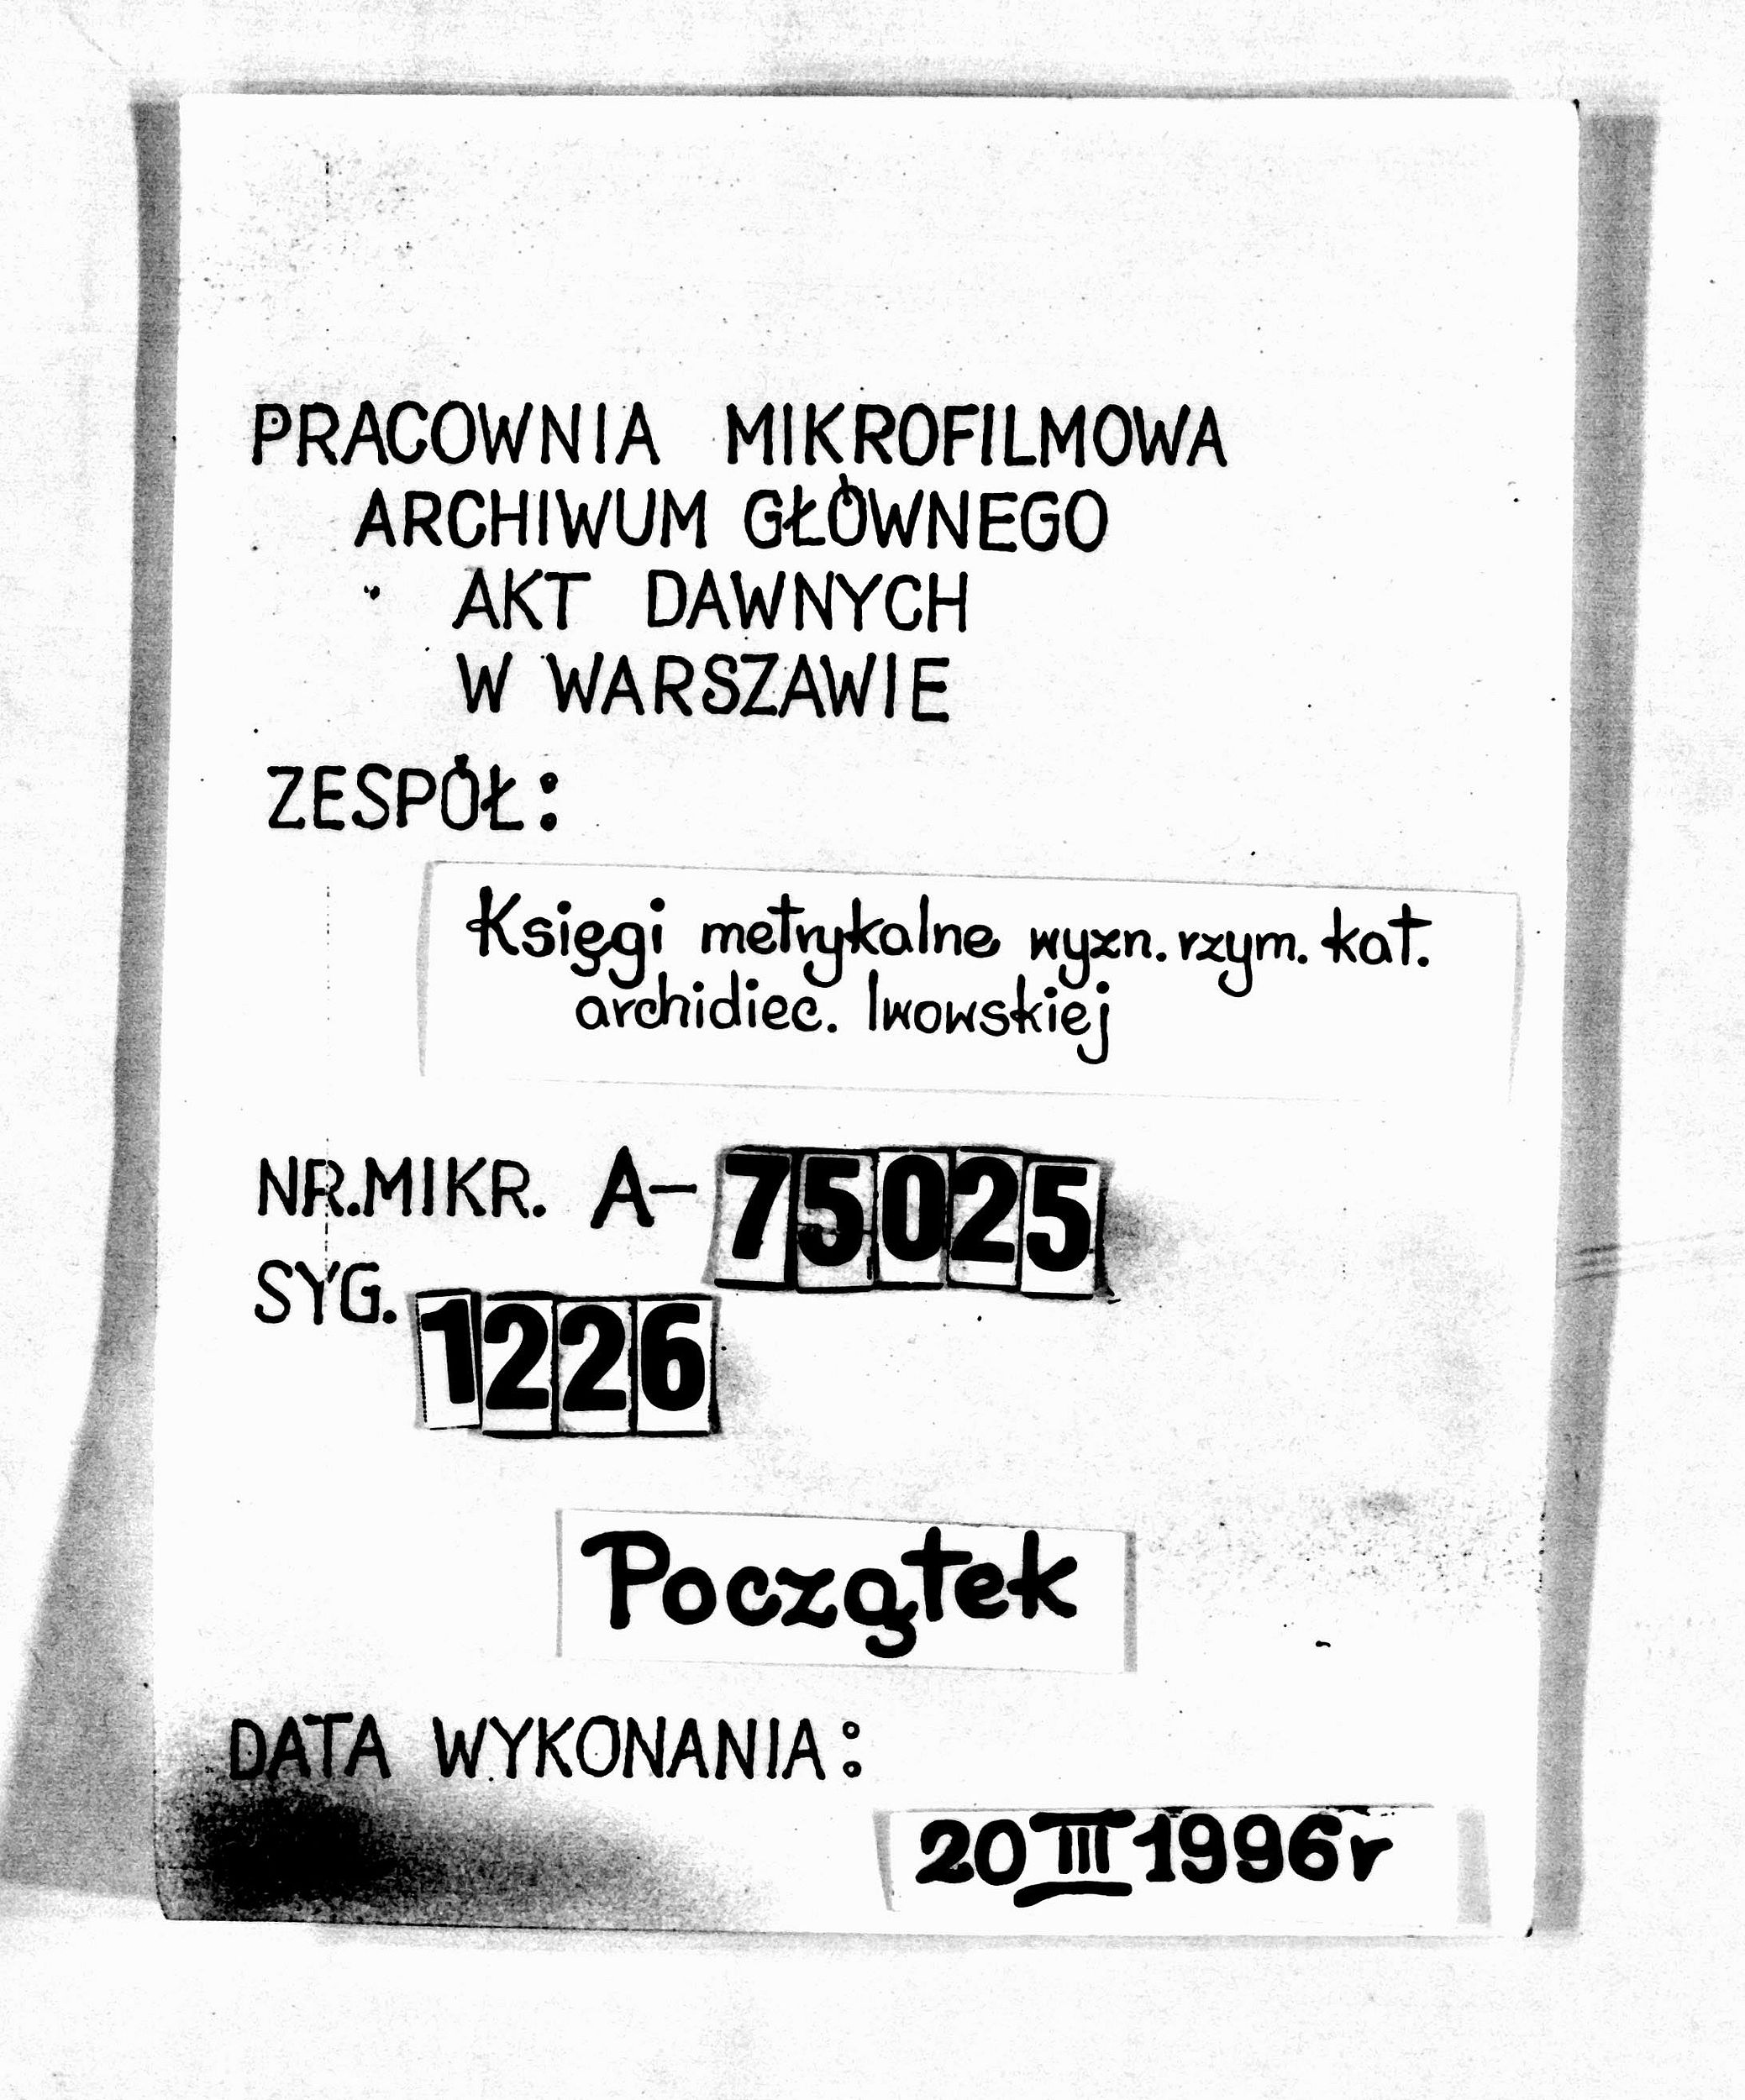 PRACOWNIA MIKROFILMOWA
ARCHIWUM GŁÓWNEGO
AKT DAWNYCH
W WARSZAWIE
ZESPÓŁ:
Księgi metrykalne wyzn. rzym. kat.
archidiec. lwowskiej
NR.MIKR. A-75025
SYG. 1226
Początek
DATA WYKONANIA:
20 III 1996r